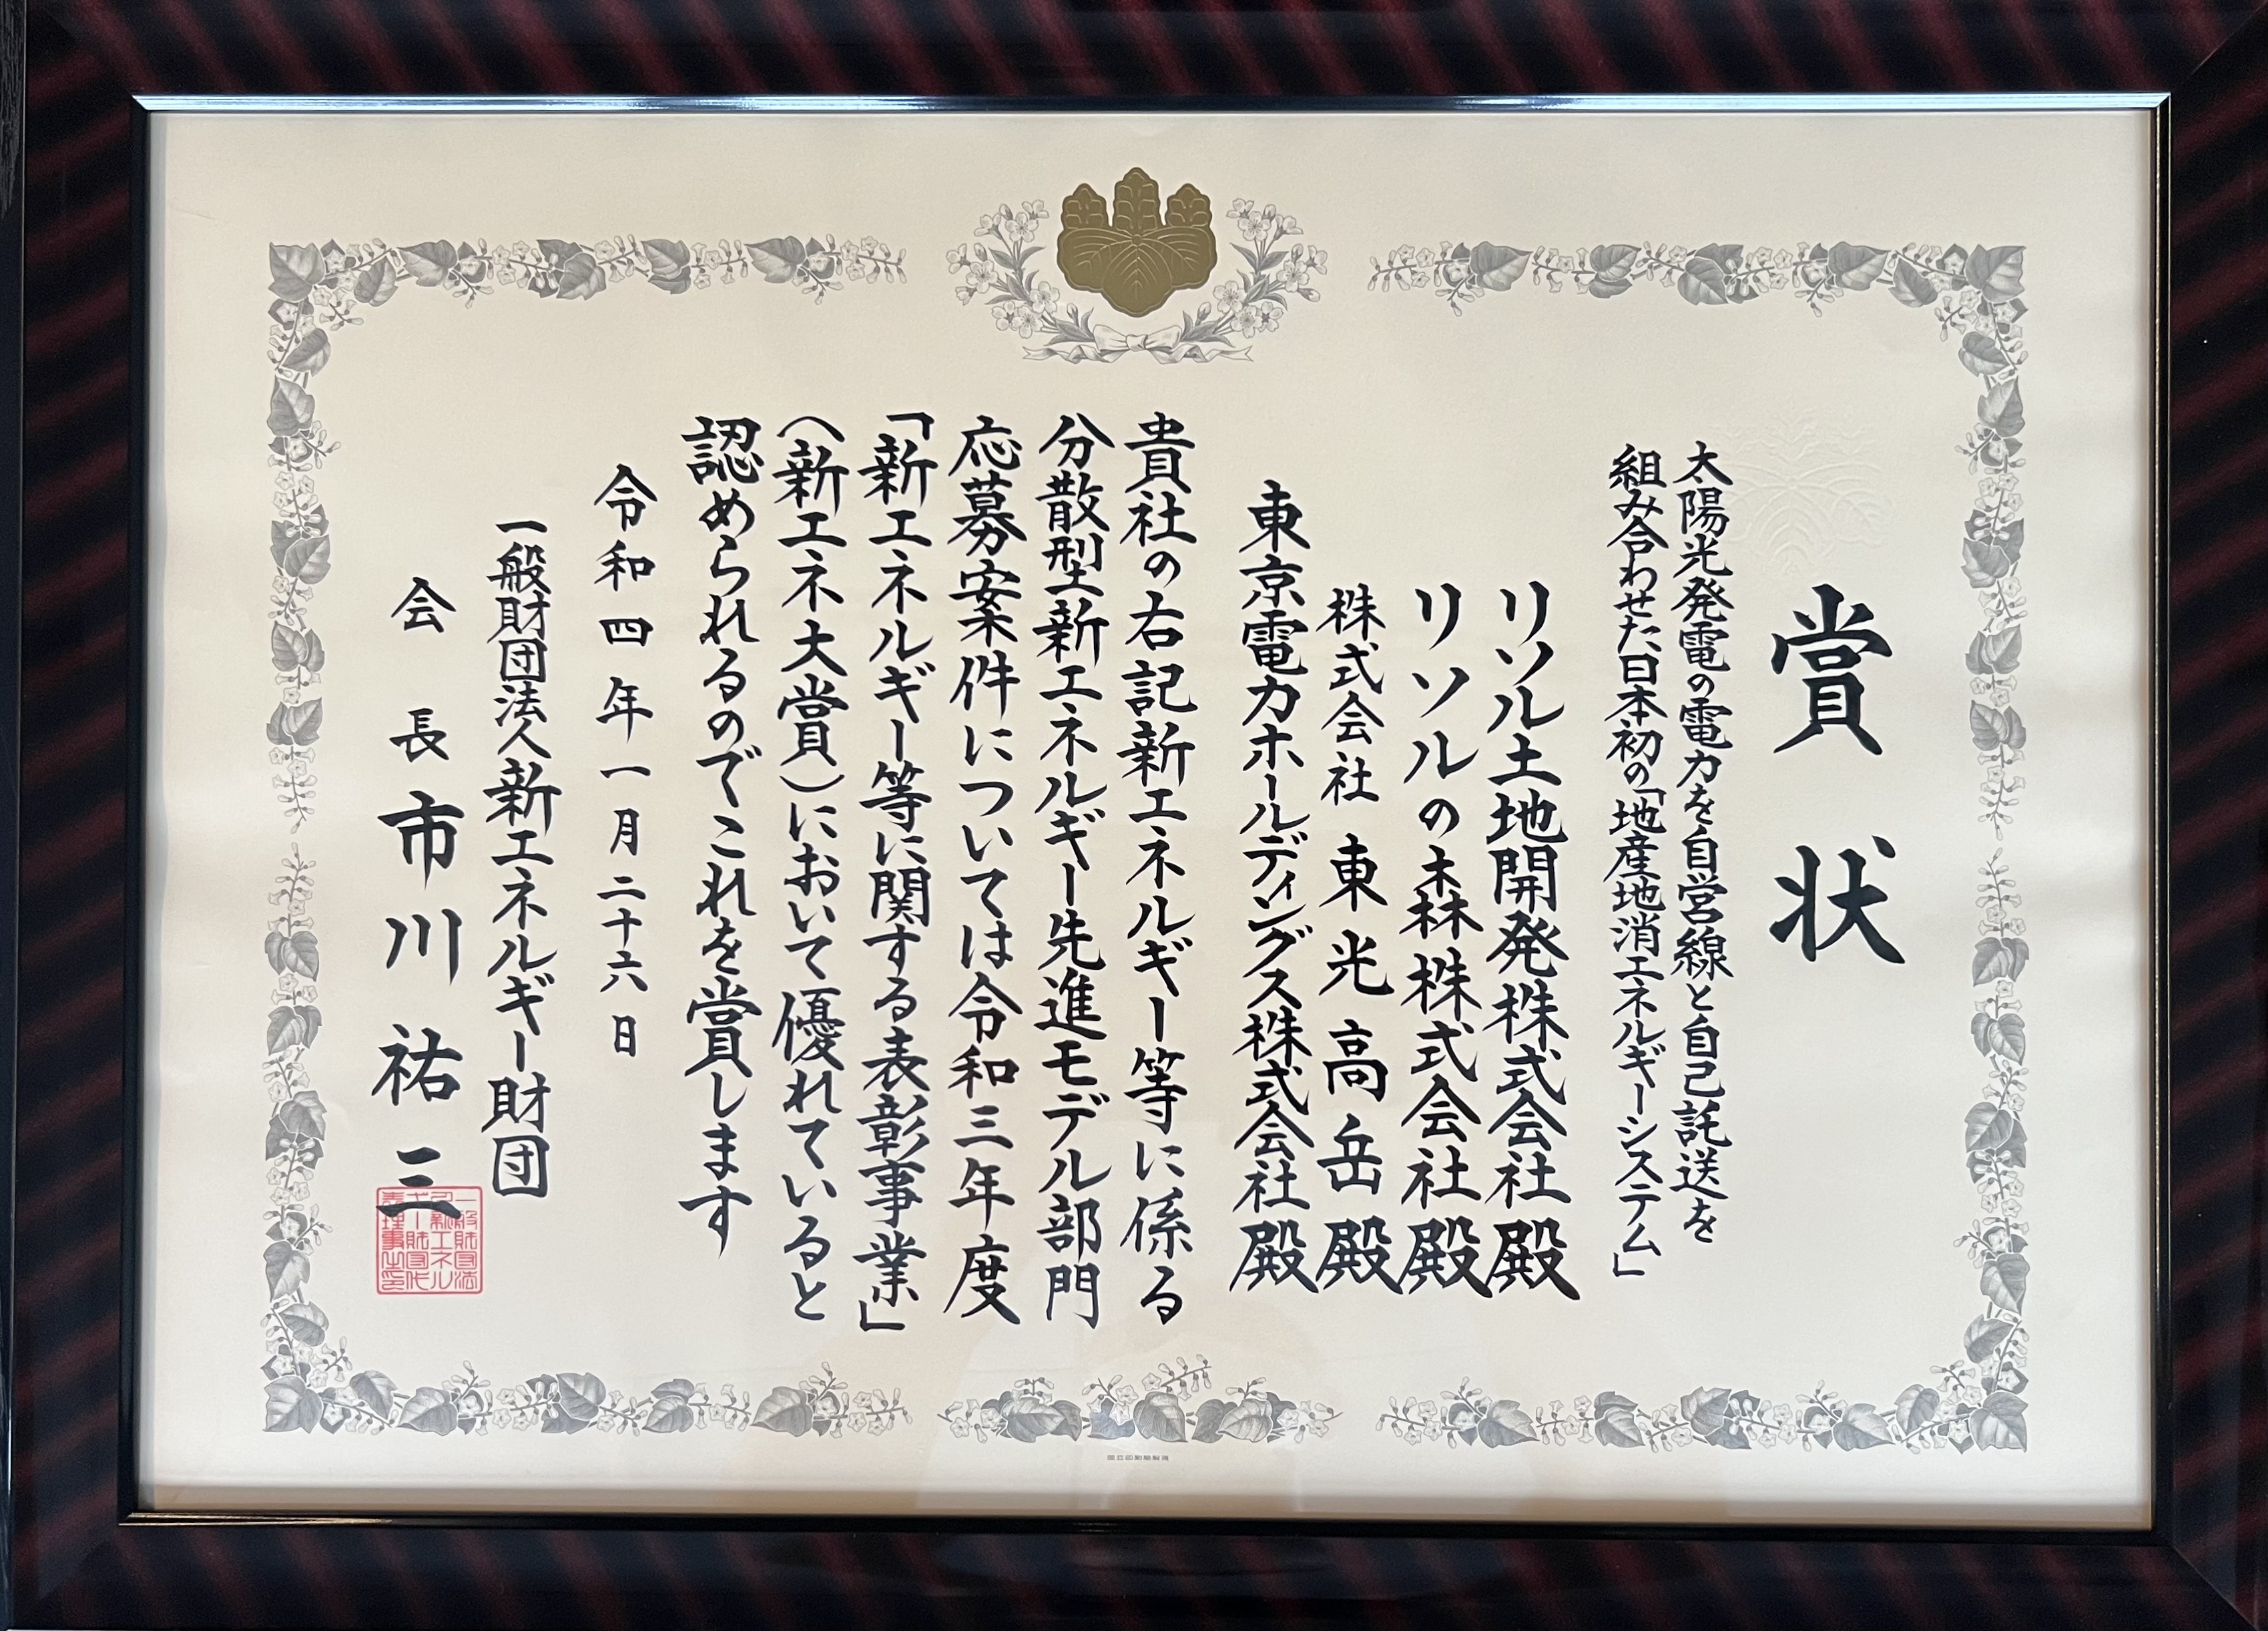 賞状
太陽光発電の電力を自営線と自己託送を
組み合わせた日本初の「地産地消エネルギーシステム」
リソル土地開発株式会社殿
リソルの森株式会社殿
株式会社東光高岳殿
東京電力ホールディングス株式会社殿
貴社の右記新エネルギー等に係る
分散型新エネルギー先進モデル部門
応募案件については令和三年度
「新エネルギー等に関する表彰事業」
(新エネ大賞)において優れていると
認められるのでこれを賞します
令和四年一月二十六日
一般財団法人新エネルギー財団
会長市川祐三
一般財団法
人新エネル
ギー財団代
表理事之印
国立印刷局製造